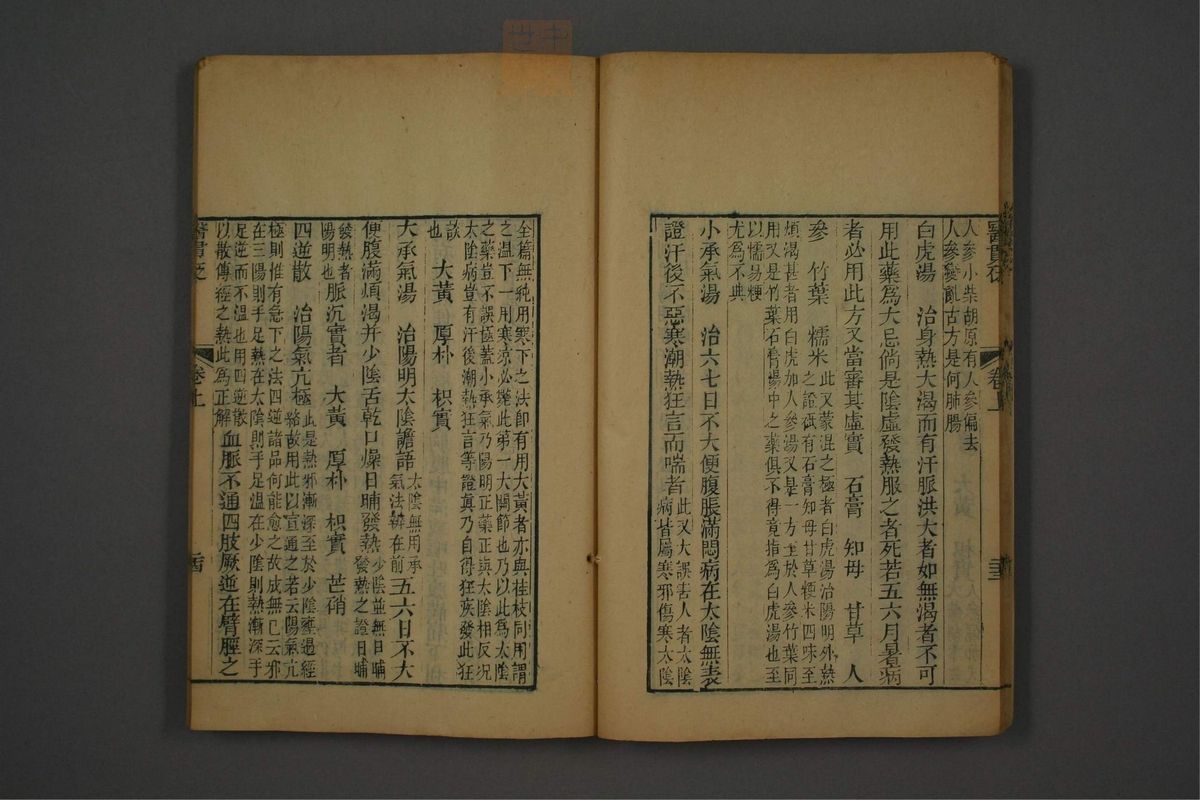 人參小柴胡原有人參偏去
人參變亂古方是何肺腸
白虎湯　治身熱大渴而有汗脈洪大者如無渴者不可
用此藥爲大忌倘是陰虛發熱服之者死若五六月暑病
者必用此方又當審其虛實　石膏　知母　甘草　人
參　竹葉　糯米
此又蒙混之極者白虎湯治陽明外熱
之證砥有石膏知母甘草粳米四味至
煩渴甚者用白虎加人參湯又是一方至於人參竹葉同
用又是竹葉石膏湯中之藥俱不得竟指爲白虎湯也至
以糯易粳
尤爲不典
小承氣湯　治六七日不大便腹脹滿悶病在太陰無表
證汗後不惡寒潮熱狂言而喘者
此又大誤害人者太陰
病皆屬寒邪傷寒太陰
醫貫砭
卷上
全篇無純用寒下之法卽有用大黃者亦與桂枝同用謂
之溫下一用寒涼必斃此第一大關節也乃以此爲太陰
之藥豈不誤極蓋小承氣乃陽明正藥正與太陰相反况
太陰病豈有汗後潮熱狂言等證眞乃自得狂疾發此狂
談
也
大黃　厚朴　枳實
大承氣湯　治陽明太陰譫語
太陰無用承
氣法辨在前
五六日不大
便腹滿煩渴并少陰舌乾口燥日晡發熱
少陰並無日晡
發熱之證日晡
發熱者
陽明也
脈沉實者　大黃　厚朴　枳實　芒硝
四逆散　治陽氣亢極
此是熱邪漸深至於少陰壅過經
絡故用此以宣通之若云陽氣亢
極則惟有急下之法四逆諸品何能愈之故成無己云邪
在三陽則手足熱在太陰則手足溫在少陰則熱漸深手
足逆而不溫也用四逆散
以散傳經之熱此爲正解
血脈不通四肢厥逆在臂脛之
醫貫砭
卷上